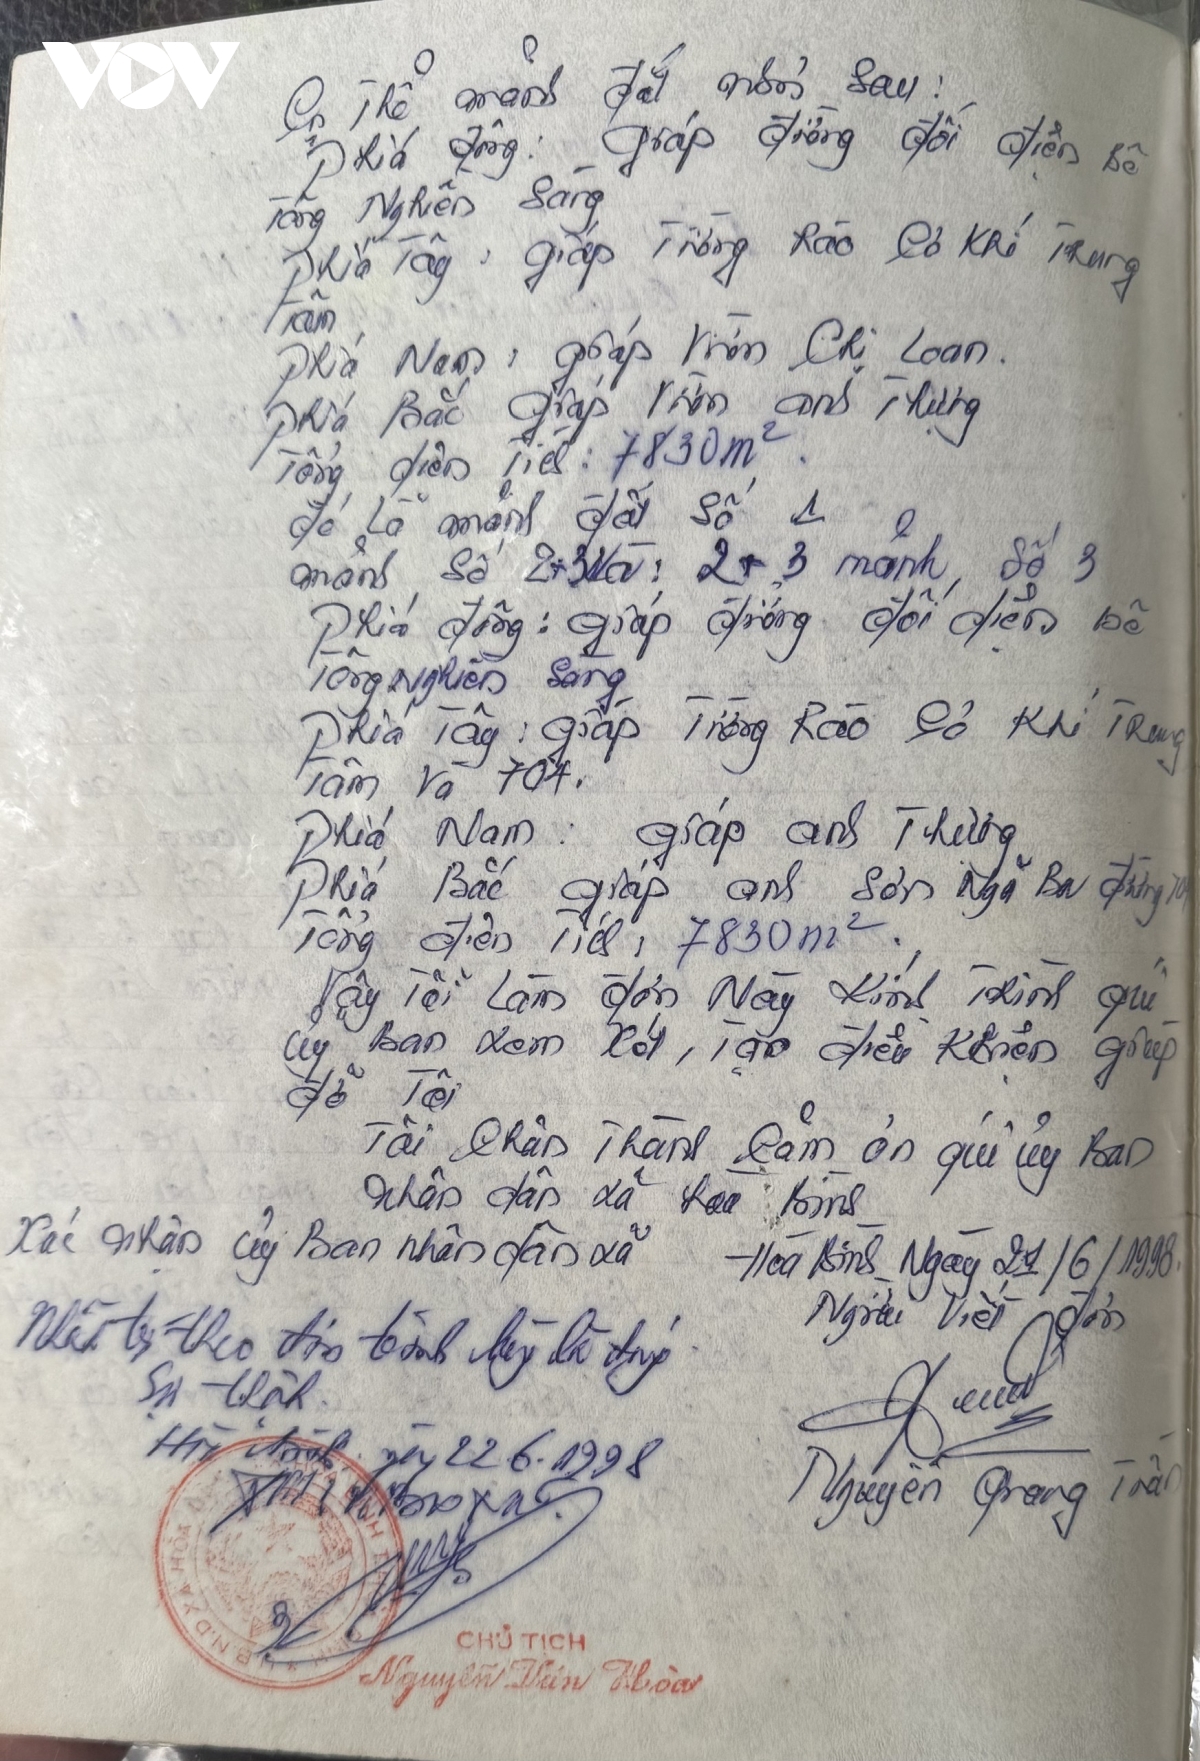 VOV
Cụ Thể mảnh đất như sau:
Phiá đông: giáp đường đối diện Bê
Tông Nghiền Sàng
Phiá Tây: giáp Tường Rào Cơ Khí Trung
Tâm
Phiá Nam: giáp Vườn Chị Loan.
Phiá Bắc giáp Vườn anh Thượng
Tổng diện Tích: 7830m².
đó Là mảnh đất Số 1
mảnh Số 2+3 Là: 2+3 mảnh Số 3
Phiá đông: giáp đường đối diện Bê
Tông Nghiền Sàng
Phiá Tây: giáp Tường Rào Cơ Khí Trung
Tâm Và 704.
Phiá Nam: giáp anh Thường
Phiá Bắc giáp anh Sơn Ngã Ba đường
Tổng diện Tích: 7830m².
Vậy Tôi Làm đơn Này Kính Trình quí
ủy Ban xem Xét, Tạo điều Kiện giúp
đỡ Tôi
Tôi Chân Thành Cảm ơn quí ủy Ban
Nhân dân xã Hoà Bình
Xác nhận ủy Ban nhân dân xã
Hoà Bình Ngày 21/6/1998.
Người Viết đơn
Nhất trí theo đơn trình bày là đúng
Sự thật.
ngày 22.6.1998
Nguyễn Quang Trân
U.B.N.D XÃ HÒA BÌNH
CHỦ TỊCH
Nguyễn Văn Hòa